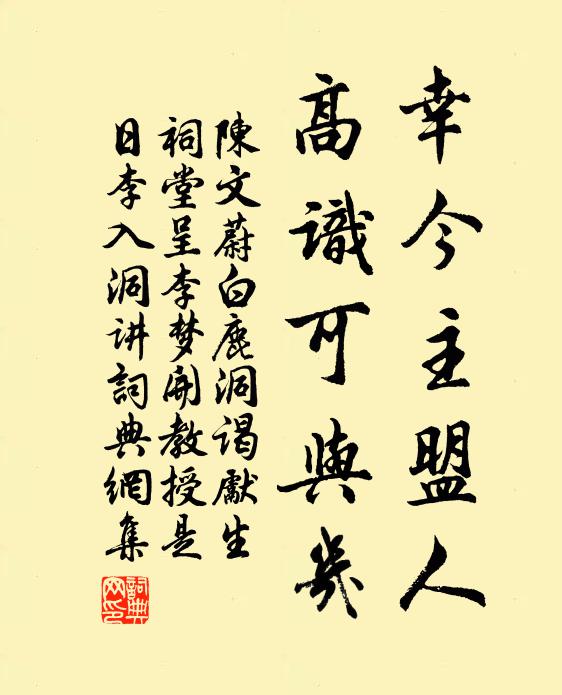 幸今主盟人
高識可與幾
陳文蔚白鹿洞谒獻生
祠堂呈李梦開教授是
日李入洞讲詞典網集
詞典網印